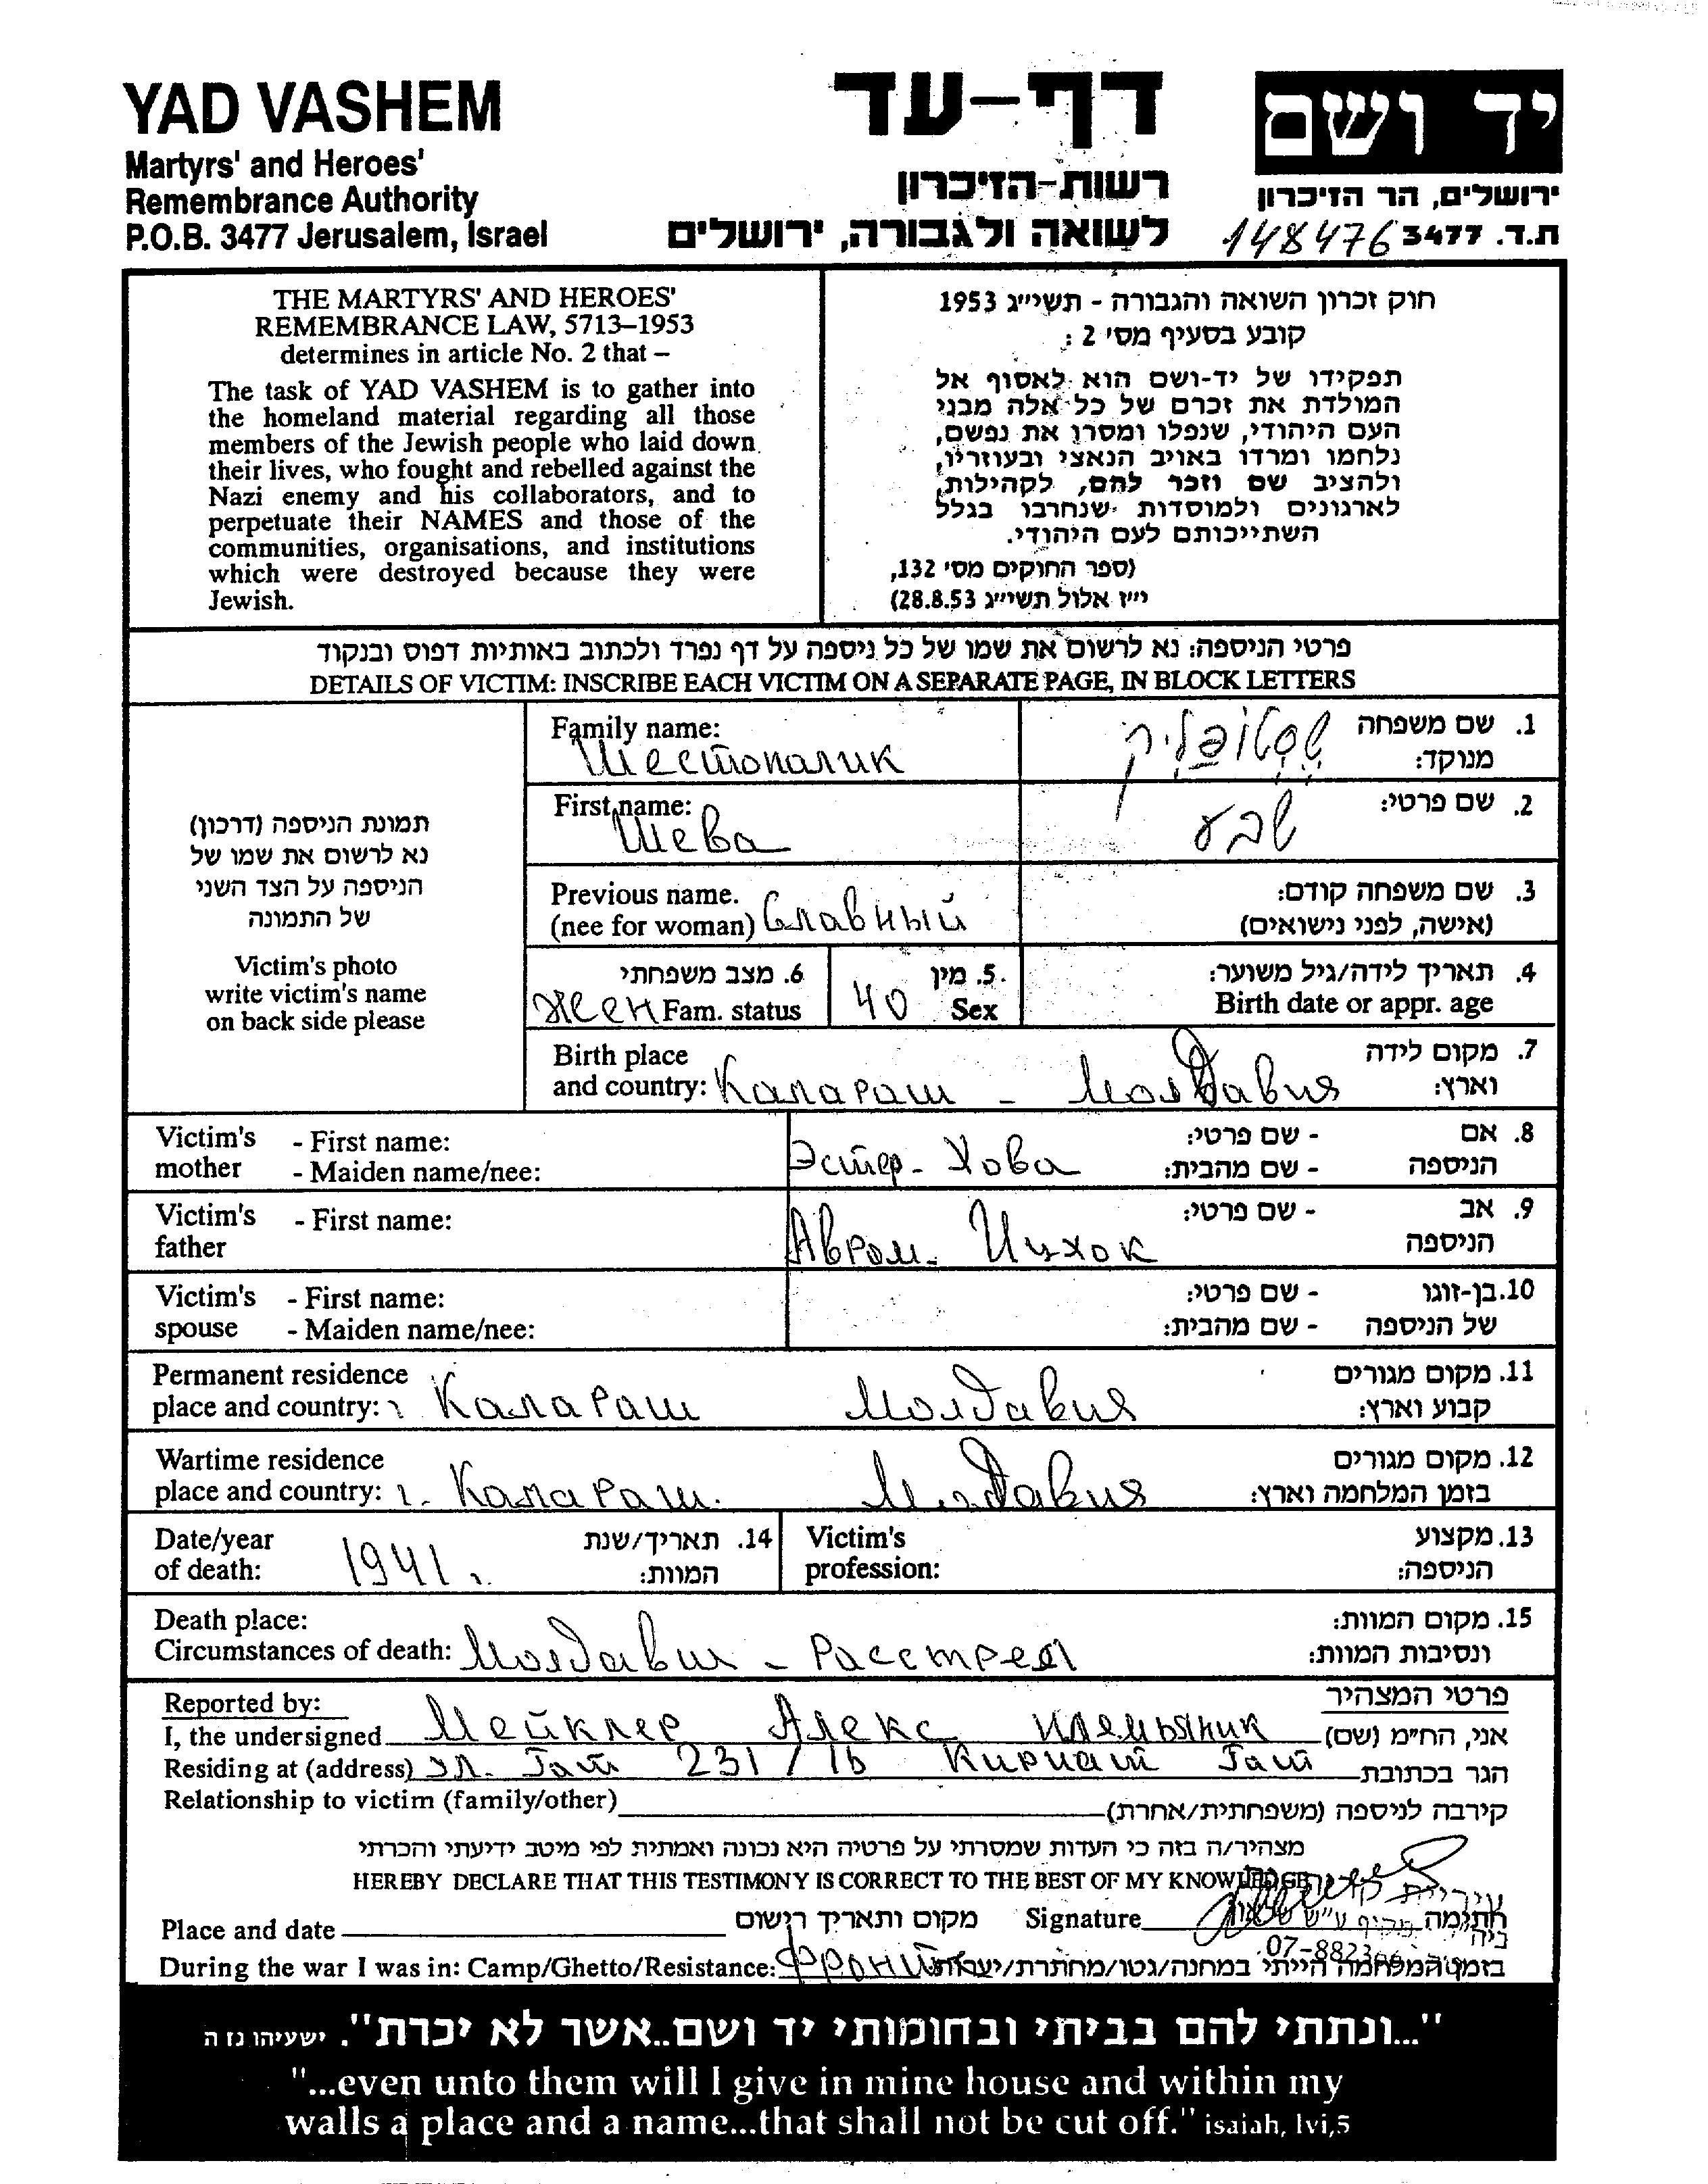 YAD VASHEM
Martyrs' and Heroes'
Remembrance Authority
P.O.B. 3477 Jerusalem, Israel
דף-עד
רשות-הזיכרון
לשואה ולגבורה, ירושלים
יד ושם
ירושלים, הר הזיכרון
ת.ד. 3477 148476
THE MARTYRS' AND HEROES'
REMEMBRANCE LAW, 5713–1953
determines in article No. 2 that –
The task of YAD VASHEM is to gather into
the homeland material regarding all those
members of the Jewish people who laid down
their lives, who fought and rebelled against the
Nazi enemy and his collaborators, and to
perpetuate their NAMES and those of the
communities, organisations, and institutions
which were destroyed because they were
Jewish.
חוק זכרון השואה והגבורה - תשי״ג 1953
קובע בסעיף מס׳ 2 :
תפקידו של יד-ושם הוא לאסוף אל
המולדת את זכרם של כל אלה מבני
העם היהודי, שנפלו ומסרו את נפשם,
נלחמו ומרדו באויב הנאצי ובעוזריו,
ולהציב שם וזכר להם, לקהילות,
לארגונים ולמוסדות שנחרבו בגלל
השתייכותם לעם היהודי.
(ספר החוקים מס׳ 132,
י״ז אלול תשי״ג 28.8.53)
פרטי הניספה: נא לרשום את שמו של כל ניספה על דף נפרד ולכתוב באותיות דפוס ובנקוד
DETAILS OF VICTIM: INSCRIBE EACH VICTIM ON A SEPARATE PAGE, IN BLOCK LETTERS
תמונת הניספה (דרכון)
נא לרשום את שמו של
הניספה על הצד השני
של התמונה
Victim's photo
write victim's name
on back side please
Family name:
Шестопалик
1. שם משפחה
מנוקד:
שסטופליק
First name:
Шева
2. שם פרטי:
שבע
Previous name.
(nee for woman) Славный
3. שם משפחה קודם:
(אישה, לפני נישואים)
6. מצב משפחתי
Жен Fam. status
5. מין
40 Sex
4. תאריך לידה/גיל משוער:
Birth date or appr. age
Birth place
and country: Калараш - Молдавия
7. מקום לידה
וארץ:
Victim's - First name:
mother - Maiden name/nee:
Эстер - Хова
8. אם - שם פרטי:
הניספה - שם מהבית:
Victim's - First name:
father
Авром - Ицхок
9. אב - שם פרטי:
הניספה
Victim's - First name:
spouse - Maiden name/nee:
10. בן-זוגו - שם פרטי:
של הניספה - שם מהבית:
Permanent residence
place and country: г. Калараш Молдавия
11. מקום מגורים
קבוע וארץ:
Wartime residence
place and country: г. Калараш. Молдавия
12. מקום מגורים
בזמן המלחמה וארץ:
Date/year
of death: 1941 г.
14. תאריך/שנת
המוות:
Victim's
profession:
13. מקצוע
הניספה:
Death place:
Circumstances of death: Молдавия - Расстрел
15. מקום המוות:
ונסיבות המוות:
Reported by:
פרטי המצהיר
I, the undersigned Мейклер Алекс племянник אני, הח״מ (שם)
Residing at (address) Эл. Гат 231/16 Кириат Гат הגר בכתובת
Relationship to victim (family/other) קירבה לניספה (משפחתית/אחרת)
מצהיר/ה בזה כי העדות שמסרתי על פרטיה היא נכונה ואמתית לפי מיטב ידיעתי והכרתי
HEREBY DECLARE THAT THIS TESTIMONY IS CORRECT TO THE BEST OF MY KNOWLEDGE
עיריית
Place and date מקום ותאריך רישום Signature חתימה
07-8823
During the war I was in: Camp/Ghetto/Resistance: Фронт בזמן המלחמה הייתי במחנה/גטו/מחתרת/יערות
"...ונתתי להם בביתי ובחומותי יד ושם..אשר לא יכרת". ישעיהו נז ה
"...even unto them will I give in mine house and within my
walls a place and a name...that shall not be cut off." isaiah, lvi,5